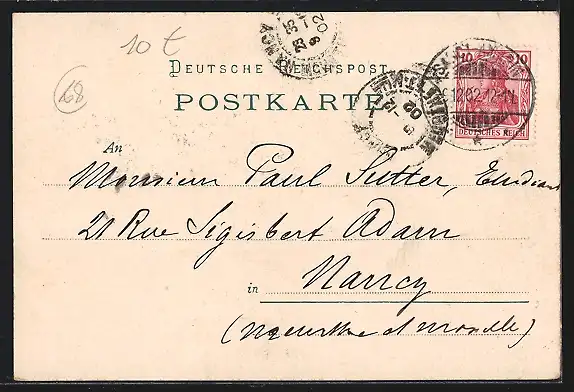 10 t
68
DEUTSCHE REICHSPOST
POSTKARTE
10 10
DEUTSCHES REICH
12.02.12-1N
02
An
Monsieur Paul Sutter, Etudiant
21 Rue Sigisbert Adam
in Nancy
(Meurthe et Moselle)